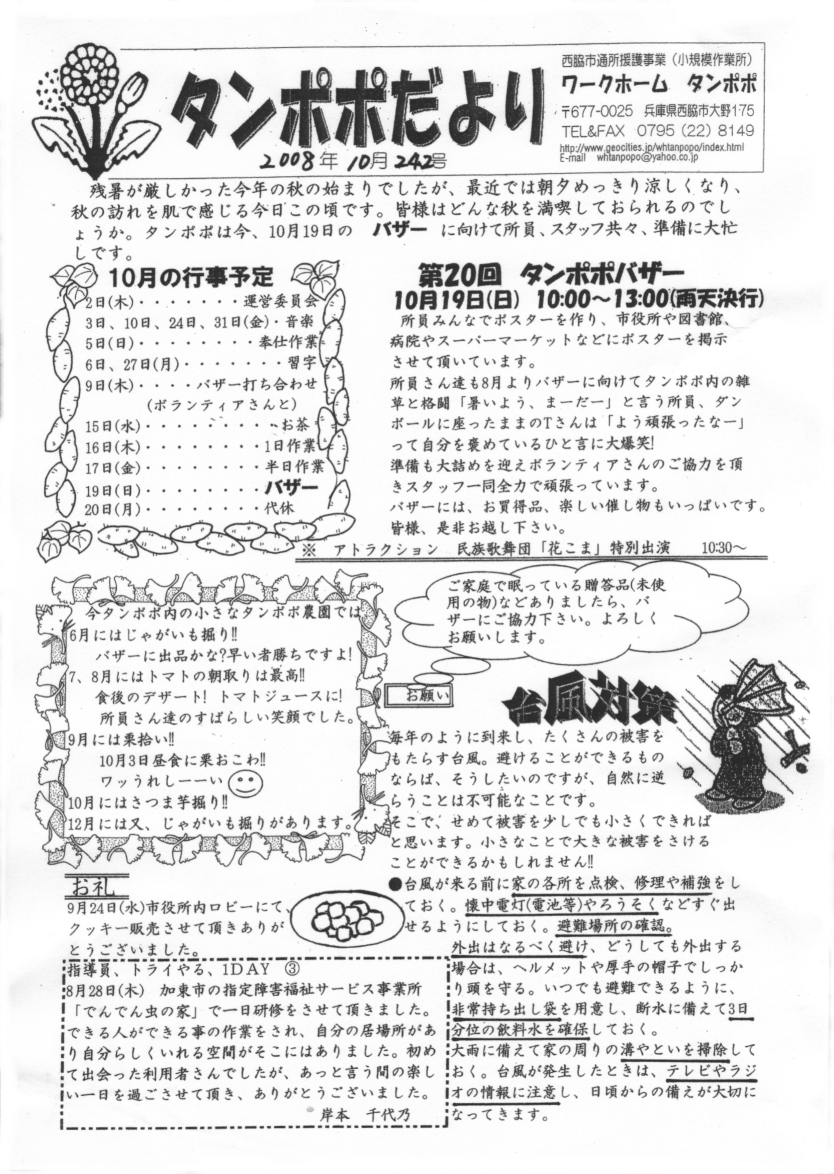 タンポポだより
2008年 10月 242号
西脇市通所援護事業（小規模作業所）
ワークホーム　タンポポ
〒677-0025　兵庫県西脇市大野175
TEL&FAX　0795（22）8149
http://www.geocities.jp/whtanpopo/index.html
E-mail　whtanpopo@yahoo.co.jp
残暑が厳しかった今年の秋の始まりでしたが、最近では朝夕めっきり涼しくなり、
秋の訪れを肌で感じる今日この頃です。皆様はどんな秋を満喫しておられるのでし
ょうか。タンポポは今、10月19日の　バザー　に向けて所員、スタッフ共々、準備に大忙
しです。
10月の行事予定
2日(木)・・・・・・・運営委員会
3日、10日、24日、31日(金)・音楽
5日(日)・・・・・・・・奉仕作業
6日、27日(月)・・・・・・・習字
9日(木)・・・・バザー打ち合わせ
(ボランティアさんと)
15日(水)・・・・・・・・・お茶
16日(木)・・・・・・・・1日作業
17日(金)・・・・・・・・半日作業
19日(日)・・・・・・・・バザー
20日(月)・・・・・・・・代休
第20回　タンポポバザー
10月19日(日)　10:00〜13:00(雨天決行)
所員みんなでポスターを作り、市役所や図書館、
病院やスーパーマーケットなどにポスターを掲示
させて頂いています。
所員さん達も8月よりバザーに向けてタンポポ内の雑
草と格闘「暑いよう、まーだー」と言う所員、ダン
ボールに座ったままのTさんは「よう頑張ったなー」
って自分を褒めているひと言に大爆笑!
準備も大詰めを迎えボランティアさんのご協力を頂
きスタッフ一同全力で頑張っています。
バザーには、お買得品、楽しい催し物もいっぱいです。
皆様、是非お越し下さい。
※　アトラクション　民族歌舞団「花こま」特別出演　　10:30〜
今タンポポ内の小さなタンポポ農園では
6月にはじゃがいも掘り!!
バザーに出品かな?早い者勝ちですよ!
7、8月にはトマトの朝取りは最高!!
食後のデザート!　トマトジュースに!
所員さん達のすばらしい笑顔でした。
9月には栗拾い!!
10月3日昼食に栗おこわ!!
ワッうれしーーい
10月にはさつま芋掘り!!
12月には又、じゃがいも掘りがあります。
ご家庭で眠っている贈答品(未使
用の物)などありましたら、バ
ザーにご協力下さい。よろしく
お願いします。
お願い
台風対策
毎年のように到来し、たくさんの被害を
もたらす台風。避けることができるもの
ならば、そうしたいのですが、自然に逆
らうことは不可能なことです。
そこで、せめて被害を少しでも小さくできれば
と思います。小さなことで大きな被害をさける
ことができるかもしれません!!
●台風が来る前に家の各所を点検、修理や補強をし
ておく。懐中電灯(電池等)やろうそくなどすぐ出
せるようにしておく。避難場所の確認。
外出はなるべく避け、どうしても外出する
場合は、ヘルメットや厚手の帽子でしっか
り頭を守る。いつでも避難できるように、
非常持ち出し袋を用意し、断水に備えて3日
分位の飲料水を確保しておく。
大雨に備えて家の周りの溝やといを掃除して
おく。台風が発生したときは、テレビやラジ
オの情報に注意し、日頃からの備えが大切に
なってきます。
お礼
9月24日(水)市役所内ロビーにて、
クッキー販売させて頂きありが
とうございました。
指導員、トライやる、1DAY　③
8月28日(木)　加東市の指定障害福祉サービス事業所
「でんでん虫の家」で一日研修をさせて頂きました。
できる人ができる事の作業をされ、自分の居場所があ
り自分らしくいれる空間がそこにはありました。初め
て出会った利用者さんでしたが、あっと言う間の楽し
い一日を過ごさせて頂き、ありがとうございました。
岸本　千代乃